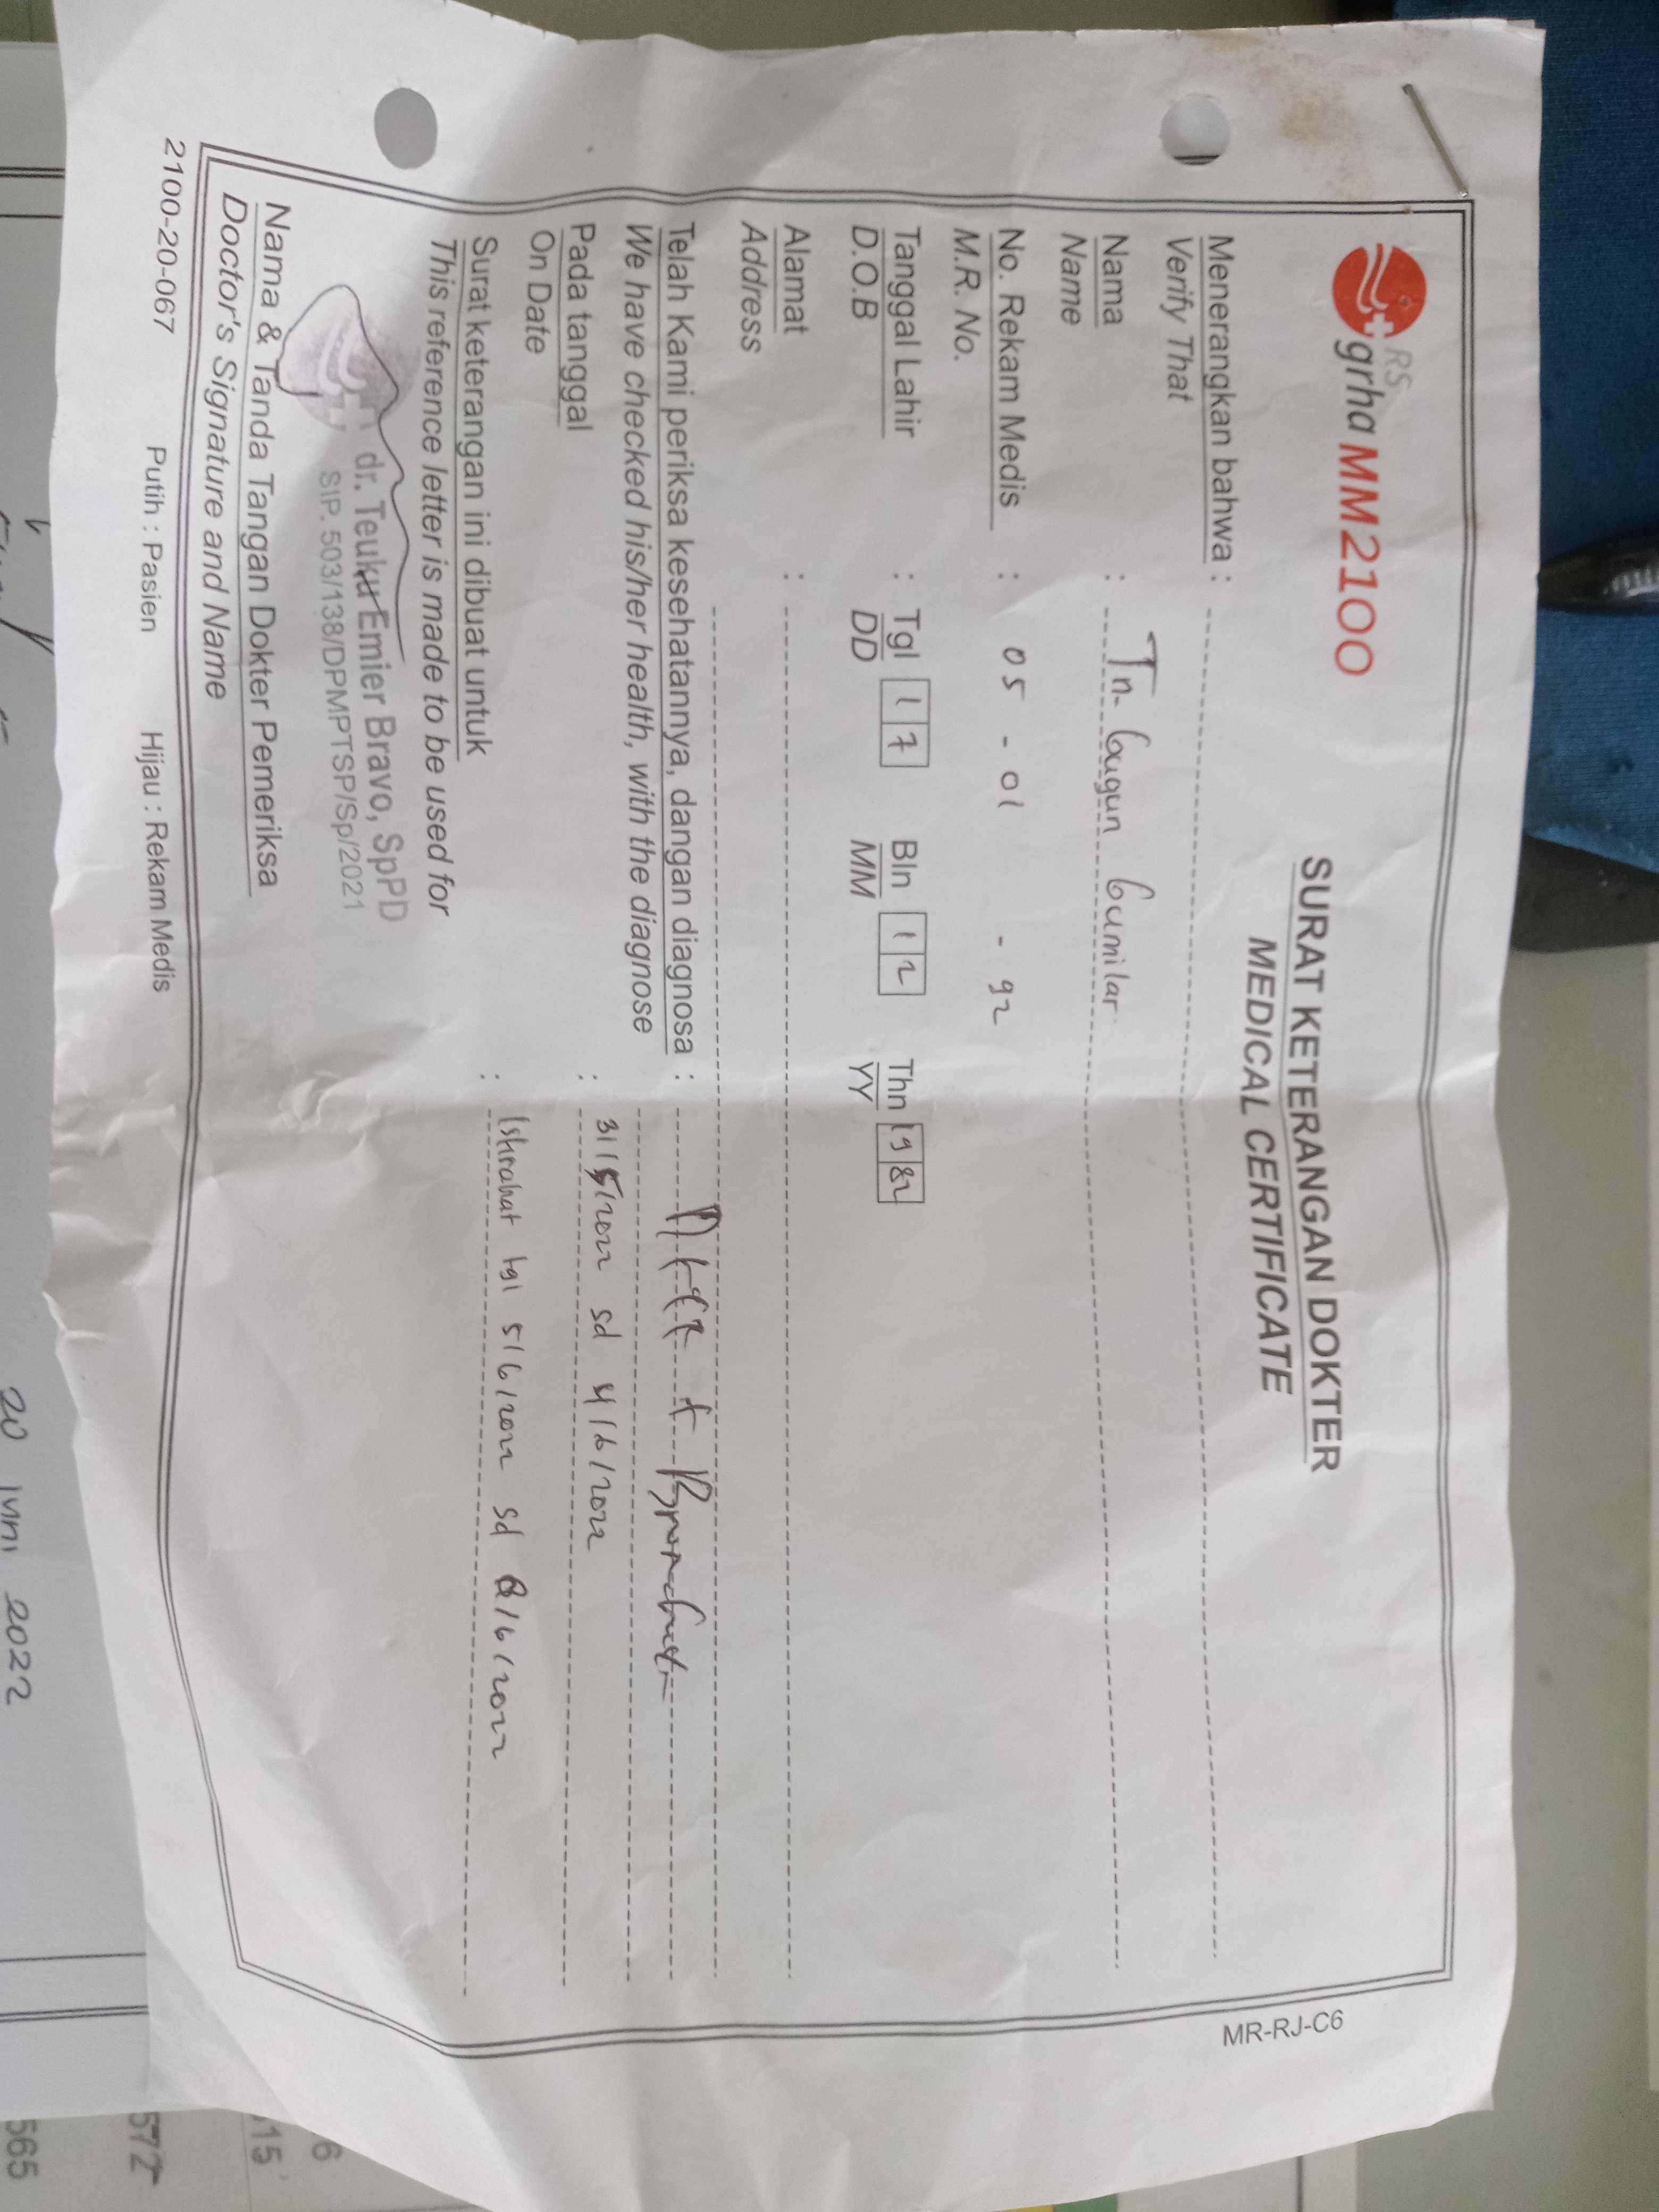 RS
grha MM2100
SURAT KETERANGAN DOKTER
MEDICAL CERTIFICATE
Menerangkan bahwa :
Verify That
Nama : Tn. Gugun Gumilar
Name
No. Rekam Medis : 05 - 01 - 92
M.R. No.
Tanggal Lahir : Tgl 17 Bln 12 Thn 1982
D.O.B DD MM YY
Alamat :
Address
Telah Kami periksa kesehatannya, dangan diagnosa :
We have checked his/her health, with the diagnose
Pada tanggal : 31/5/2022 sd 4/6/2022
On Date
Surat keterangan ini dibuat untuk : Istirahat tgl 5/6/2022 sd 8/6/2022
This reference letter is made to be used for
dr. Teuku Emier Bravo, SpPD
SIP. 503/138/DPMPTSP/Sp/2021
Nama & Tanda Tangan Dokter Pemeriksa
Doctor's Signature and Name
2100-20-067 Putih : Pasien Hijau : Rekam Medis
MR-RJ-C6
20 Juni 2022
6
15
572
565